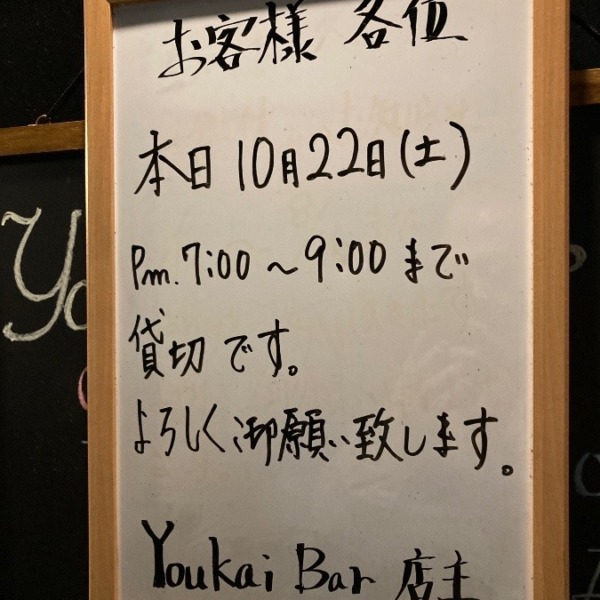 お客様 各位
本日10月22日(土)
Pm.7:00～9:00まで
貸切です。
よろしく御願い致します。
Youkai Bar 店主